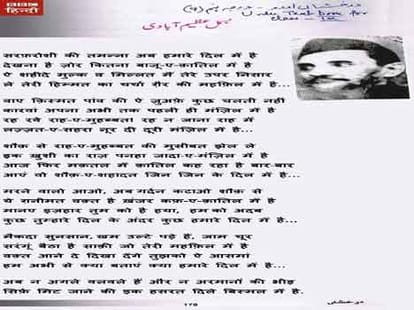 BBC
हिन्दी
Urdu Text Book for
class - 12
بسمل عظیم آبادی
सरफ़रोशी की तमन्ना अब हमारे दिल में है
देखना है ज़ोर कितना बाज़ू-ए-क़ातिल में है
ऐ शहीदे मुल्क व मिल्लत मैं तेरे उपर निसार
ले तेरी हिम्मत का चर्चा ग़ैर की महफ़िल में है...
वाए क़िस्मत पांव की ऐ ज़ुअफ़ कुछ चलती नहीं
कारवां अपना अभी तक पहली ही मंज़िल में है
रह रवे राह-ए-मुहब्बत! रह न जाना राह में
लज़्ज़त-ए-सहरा नूर दी दूरी मंज़िल में है...
शौक़ से राह-ए-मुहब्बत की मुसीबत झेल ले
इक ख़ुशी का राज़ पनहा जादा-ए-मंज़िल में है
आज फिर मक़तल में क़ातिल कह रहा है बार-बार
आएं वो शौक़-ए-शहादत जिन जिन के दिल में है...
मरने वालो आओ, अब गर्दन कटाओ शौक़ से
ये ग़नीमत वक़्त है ख़ंजर कफ़-ए-क़ातिल में है
मानए इज़हार तुम को है हया, हम को अदब
कुछ तुम्हारे दिल के अंदर कुछ हमारे दिल में है...
मैकदा सुनसान, ख़म उल्टे पड़े हैं, जाम चूर
सरंगूं बैठा है साक़ी जो तेरी महफ़िल में है
वक़्त आने दे दिखा देंगे तुझको ऐ आसमां
हम अभी से क्या बताएं क्या हमारे दिल में है...
अब न अगले वलवले हैं और न अरमानों की भीड़
सिर्फ़ मिट जाने की इक हसरत दिले बिस्मिल में है.
176
درخشاں